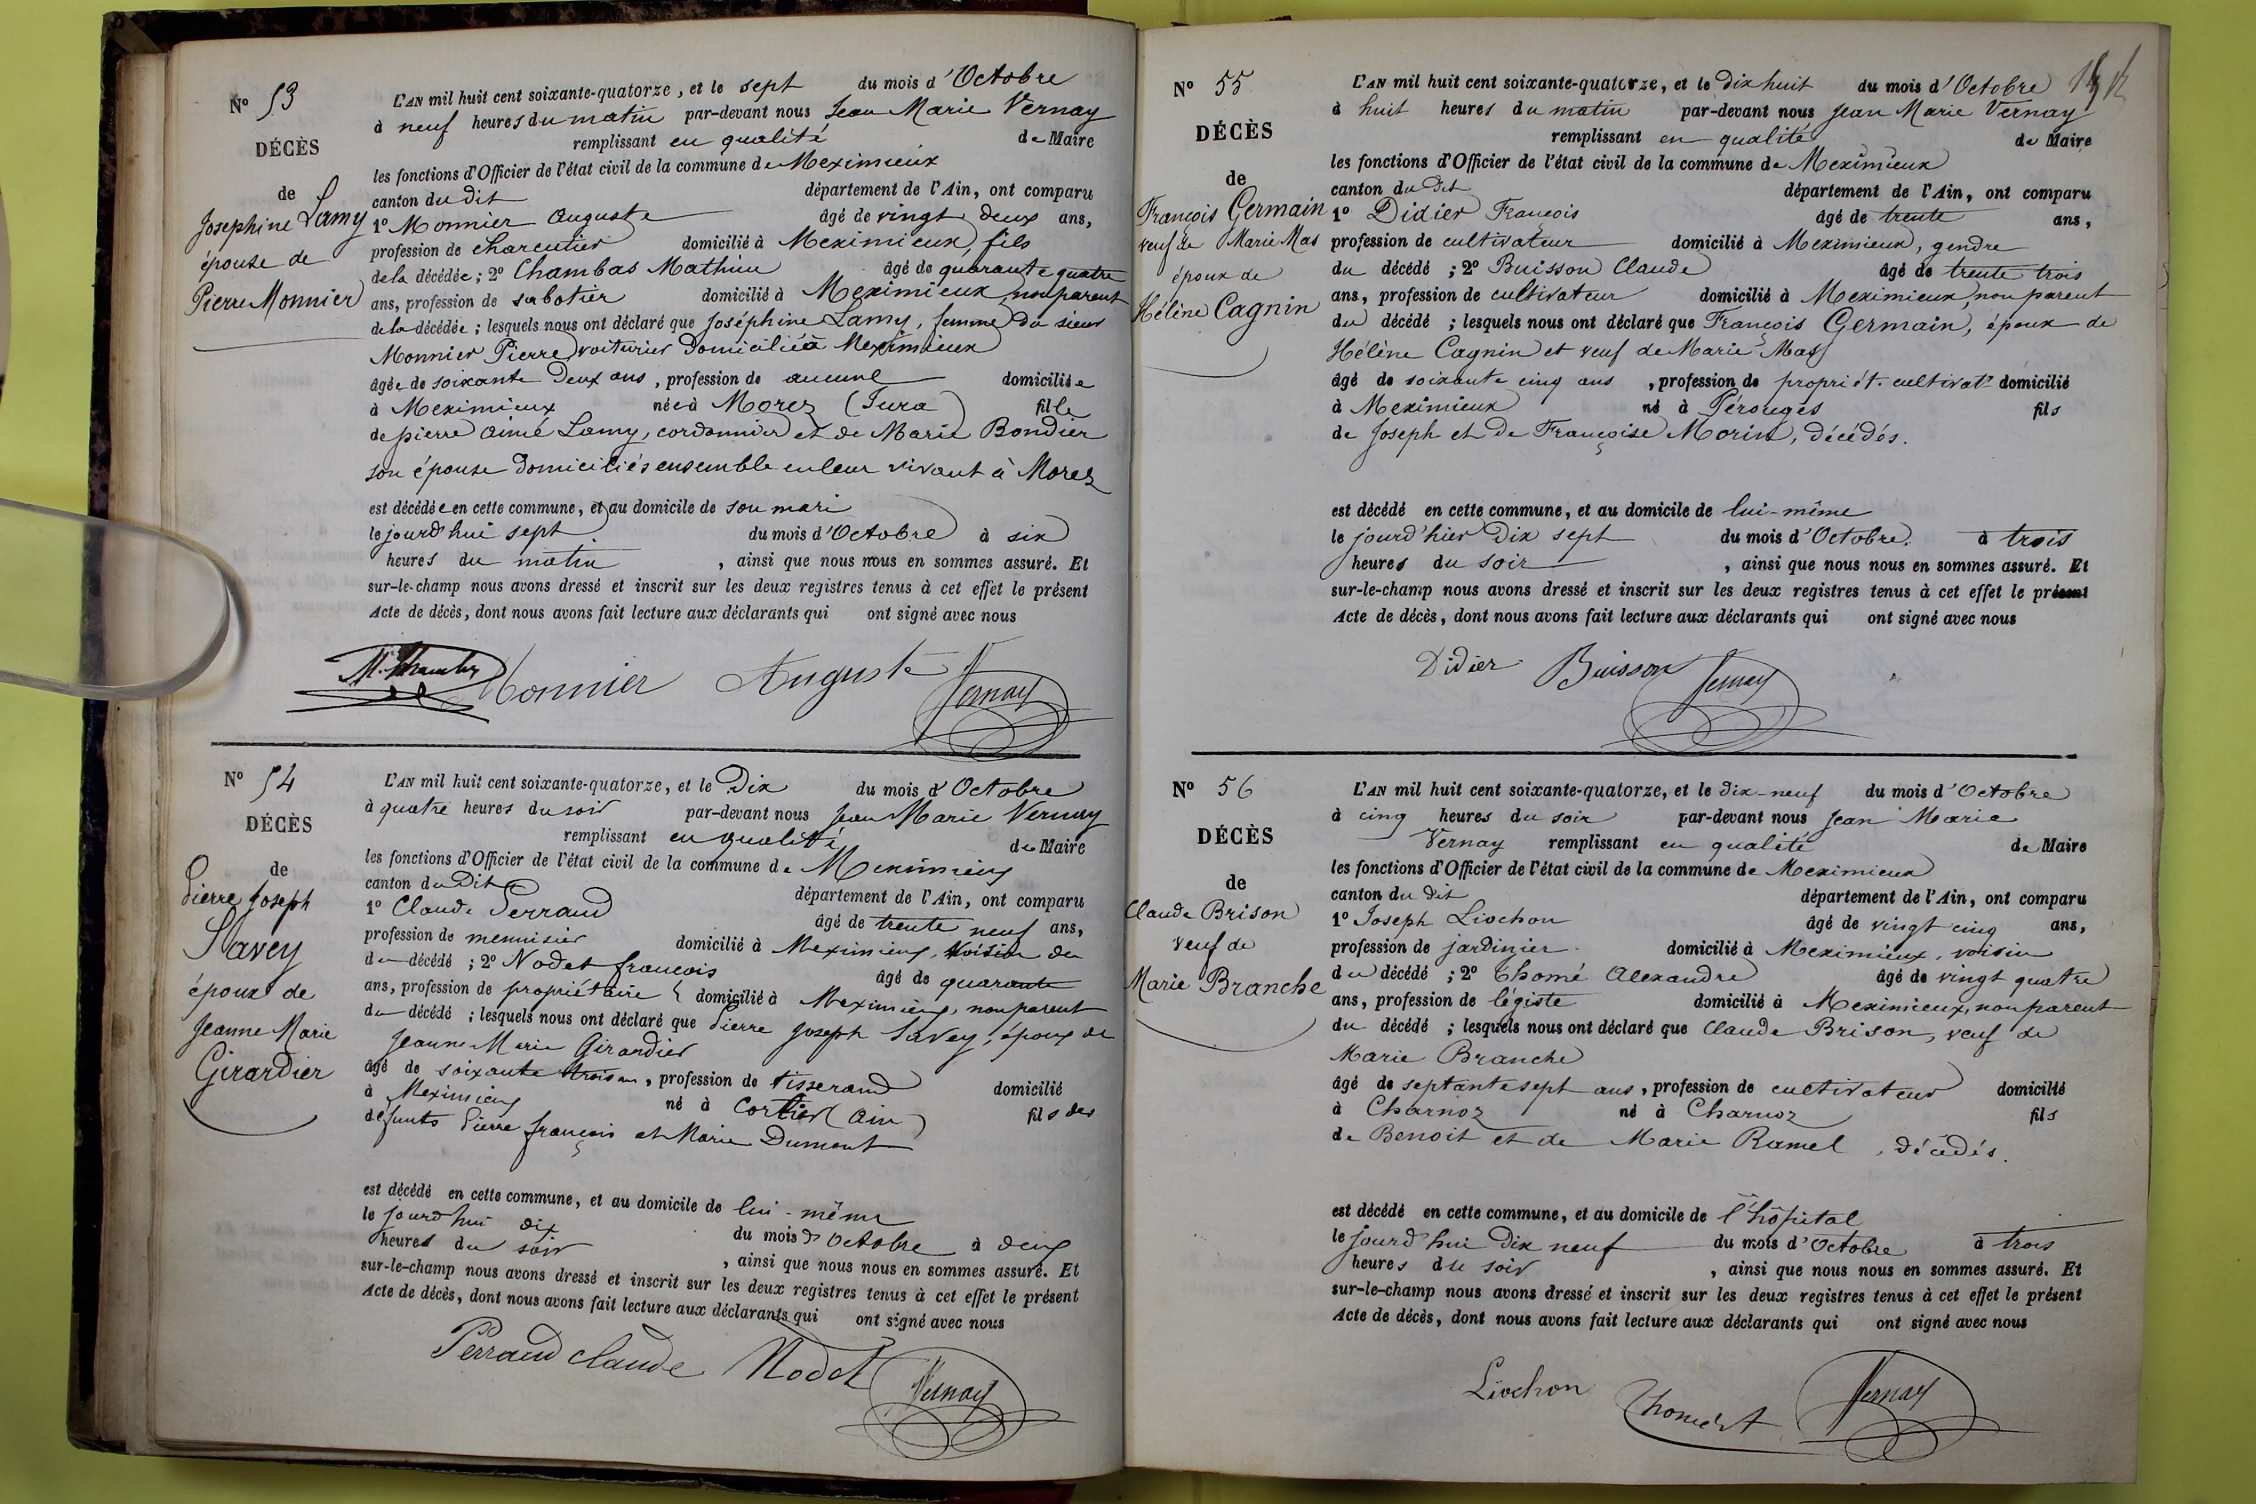 N° 53
DÉCÈS
de
Josephine Lamy
épouse de
Pierre Monnier
L'AN mil huit cent soixante-quatorze, et le sept du mois d'Octobre
à neuf heures du matin par-devant nous Jean Marie Vernay
remplissant en qualité de Maire
les fonctions d'Officier de l'état civil de la commune de Meximieux
canton du dit département de l'Ain, ont comparu
1° Monnier Auguste âgé de vingt deux ans,
profession de charcutier domicilié à Meximieux, fils
de la décédée ; 2° Chambas Mathieu âgé de quarante quatre
ans, profession de sabotier domicilié à Meximieux, non parent
de la décédée ; lesquels nous ont déclaré que Joséphine Lamy, femme du sieur
Monnier Pierre voiturier domicilié à Meximieux
âgée de soixante deux ans, profession de aucune domiciliée
à Meximieux née à Morez (Jura) fille
de pierre aimé Lamy, cordonnier et de Marie Bondier
son épouse domiciliés ensemble en leur vivant à Morez
est décédée en cette commune, et au domicile de son mari
le jourd'hui sept du mois d'Octobre à six
heures du matin, ainsi que nous nous en sommes assuré. Et
sur-le-champ nous avons dressé et inscrit sur les deux registres tenus à cet effet le présent
Acte de décès, dont nous avons fait lecture aux déclarants qui ont signé avec nous
Monnier Auguste Vernay
N° 54
DÉCÈS
de
Pierre Joseph
Savey
époux de
Jeanne Marie
Girardier
L'AN mil huit cent soixante-quatorze, et le Dix du mois d'Octobre
à quatre heures du soir par-devant nous Jean Marie Vernay
remplissant en qualité de Maire
les fonctions d'Officier de l'état civil de la commune de Meximieux
canton du Dit département de l'Ain, ont comparu
1° Claude Perraud âgé de trente neuf ans,
profession de menuisier domicilié à Meximieux, voisin du
du décédé ; 2° Nodet françois âgé de quarante
ans, profession de propriétaire domicilié à Meximieux, non parent
du décédé ; lesquels nous ont déclaré que Pierre Joseph Savey, époux de
Jeanne Marie Girardier
âgé de soixante trois ans, profession de tisserand domicilié
à Meximieux né à Cortier (Ain) fils des
défunts Pierre françois et Marie Dumont
est décédé en cette commune, et au domicile de lui-même
le jourd'hui dix du mois d'Octobre à deux
heures du soir, ainsi que nous nous en sommes assuré. Et
sur-le-champ nous avons dressé et inscrit sur les deux registres tenus à cet effet le présent
Acte de décès, dont nous avons fait lecture aux déclarants qui ont signé avec nous
Perraud claude Nodet Vernay
N° 55
DÉCÈS
de
François Germain
veuf de Marie Mas
époux de
Hélène Cagnin
L'AN mil huit cent soixante-quatorze, et le Dix huit du mois d'Octobre
à huit heures du matin par-devant nous Jean Marie Vernay
remplissant en qualité de Maire
les fonctions d'Officier de l'état civil de la commune de Meximieux
canton du dit département de l'Ain, ont comparu
1° Didier François âgé de trente ans,
profession de cultivateur domicilié à Meximieux, gendre
du décédé ; 2° Buisson Claude âgé de trente trois
ans, profession de cultivateur domicilié à Meximieux, non parent
du décédé ; lesquels nous ont déclaré que François Germain, époux de
Hélène Cagnin et veuf de Marie Mas
âgé de soixante cinq ans, profession de propriét. cultivatr domicilié
à Meximieux né à Pérouges fils
de Joseph et de Françoise Morin, décédés.
est décédé en cette commune, et au domicile de lui-même
le jourd'hier Dix sept du mois d'Octobre. à trois
heures du soir, ainsi que nous nous en sommes assuré. Et
sur-le-champ nous avons dressé et inscrit sur les deux registres tenus à cet effet le présent
Acte de décès, dont nous avons fait lecture aux déclarants qui ont signé avec nous
Didier Buisson Vernay
N° 56
DÉCÈS
de
Claude Brison
veuf de
Marie Branche
L'AN mil huit cent soixante-quatorze, et le dix-neuf du mois d'Octobre
à cinq heures du soir par-devant nous Jean Marie
Vernay remplissant en qualité de Maire
les fonctions d'Officier de l'état civil de la commune de Meximieux
canton du dit département de l'Ain, ont comparu
1° Joseph Liochon âgé de vingt cinq ans,
profession de jardinier domicilié à Meximieux, voisin
du décédé ; 2° Thomé Alexandre âgé de vingt quatre
ans, profession de légiste domicilié à Meximieux, non parent
du décédé ; lesquels nous ont déclaré que Claude Brison, veuf de
Marie Branche
âgé de septante sept ans, profession de cultivateur domicilié
à Charnoz né à Charnoz fils
de Benoit et de Marie Ramel, décédés.
est décédé en cette commune, et au domicile de l'hôpital
le jourd'hui Dix neuf du mois d'Octobre à trois
heures du soir, ainsi que nous nous en sommes assuré. Et
sur-le-champ nous avons dressé et inscrit sur les deux registres tenus à cet effet le présent
Acte de décès, dont nous avons fait lecture aux déclarants qui ont signé avec nous
Liochon Vernay